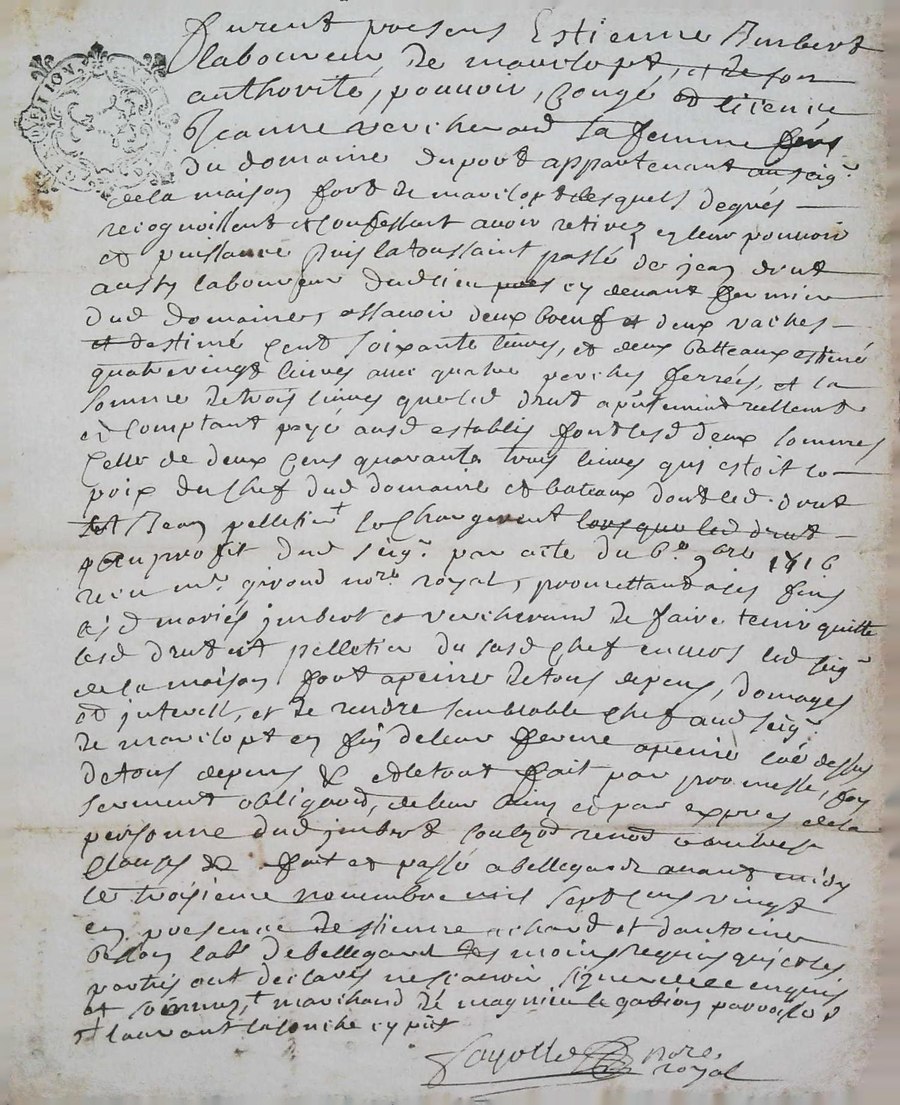 furent presens Estienne Imbert
laboureur de marclopt, et de son
authorité, pouvoir, congé et licence
Jeanne vercherand sa femme
du domaine du port appartenant au seigr
de la maison fort de marclopt lesquels de gré
recognoissent et confessent avoir retirez en leur pouvoir
et puissance puis la toussaint passé de jean drut
aussy laboureur dud lieu cy devant fermier
dud domaine, assavoir deux boeufs et deux vaches
estimé cent soixante livres, et deux batteaux estimé
quatrevingt livres avec quatre perches ferrées, et la
somme de trois livres que led drut a presentement reellement
et comptant payé ausd establis font lesd deux sommes
celle de deux cens quarante trois livres qui estoit le
prix du chef dud domaine et bateaux dont led drut
et Jean pelletier se chargerent lors que led drut
au proffit dud seigr par acte du 6e 9bre 1716
receu me girond nore royal, promettand a ces fins
lesd mariés imbert et vercherand de faire tenir quitte
lesd drut et pelletier du susd chef envers led seigr
de la maison fort a peine de tous depens, domages
et interest, et de rendre semblable chef aud seigr
de marclopt en fin de leur ferme a peine que dessus
de tous depens & et le tout fait par promesse, foy
serment obligaon, de leur biens et par expres de la
personne dud imbert soubzon renoon a autres
clauses & fait et passé a bellegarde avant midy
le troisieme novembre mil sept cens vingt
en presence d'estienne achard et d'antoine
labr de bellegarde tesmoins requis qui et les
parties ont declarés ne scavoir signer de ce enquis
et sommez + marchand de
+ laurant la souche cy pnt
fayolle nore
royal